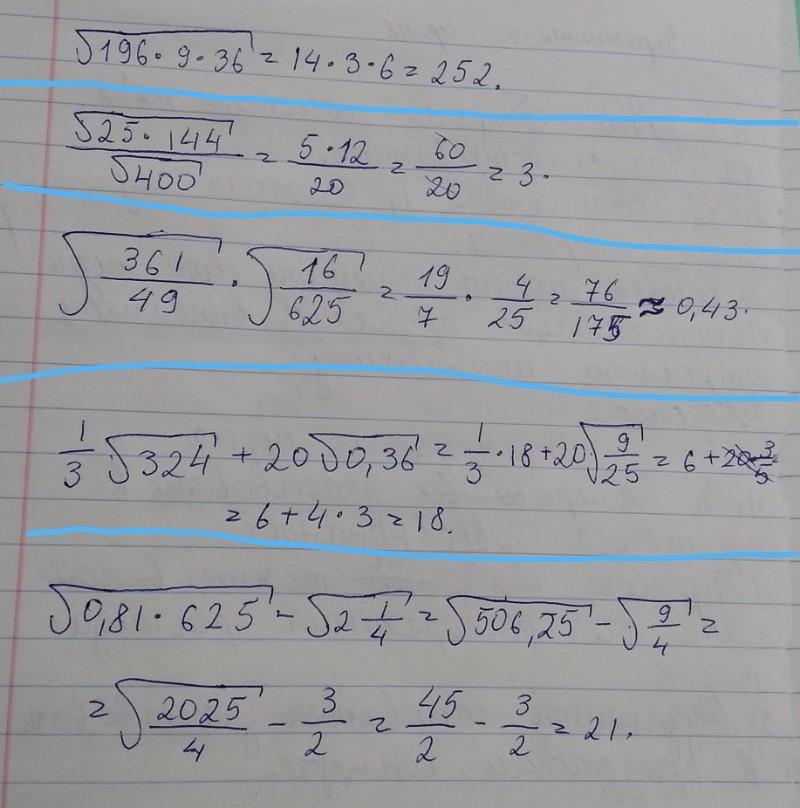 √196·9·36 = 14·3·6 = 252.
√25·144/√400 = 5·12/20 = 60/20 = 3.
√361/49 · √16/625 = 19/7 · 4/25 = 76/175 ≈ 0,43.
1/3 √324 + 20√0,36 = 1/3·18+20√9/25 = 6+
= 6+4·3 = 18.
√0,81·625 - √2 1/4 = √506,25 - √9/4 =
= √2025/4 - 3/2 = 45/2 - 3/2 = 21.